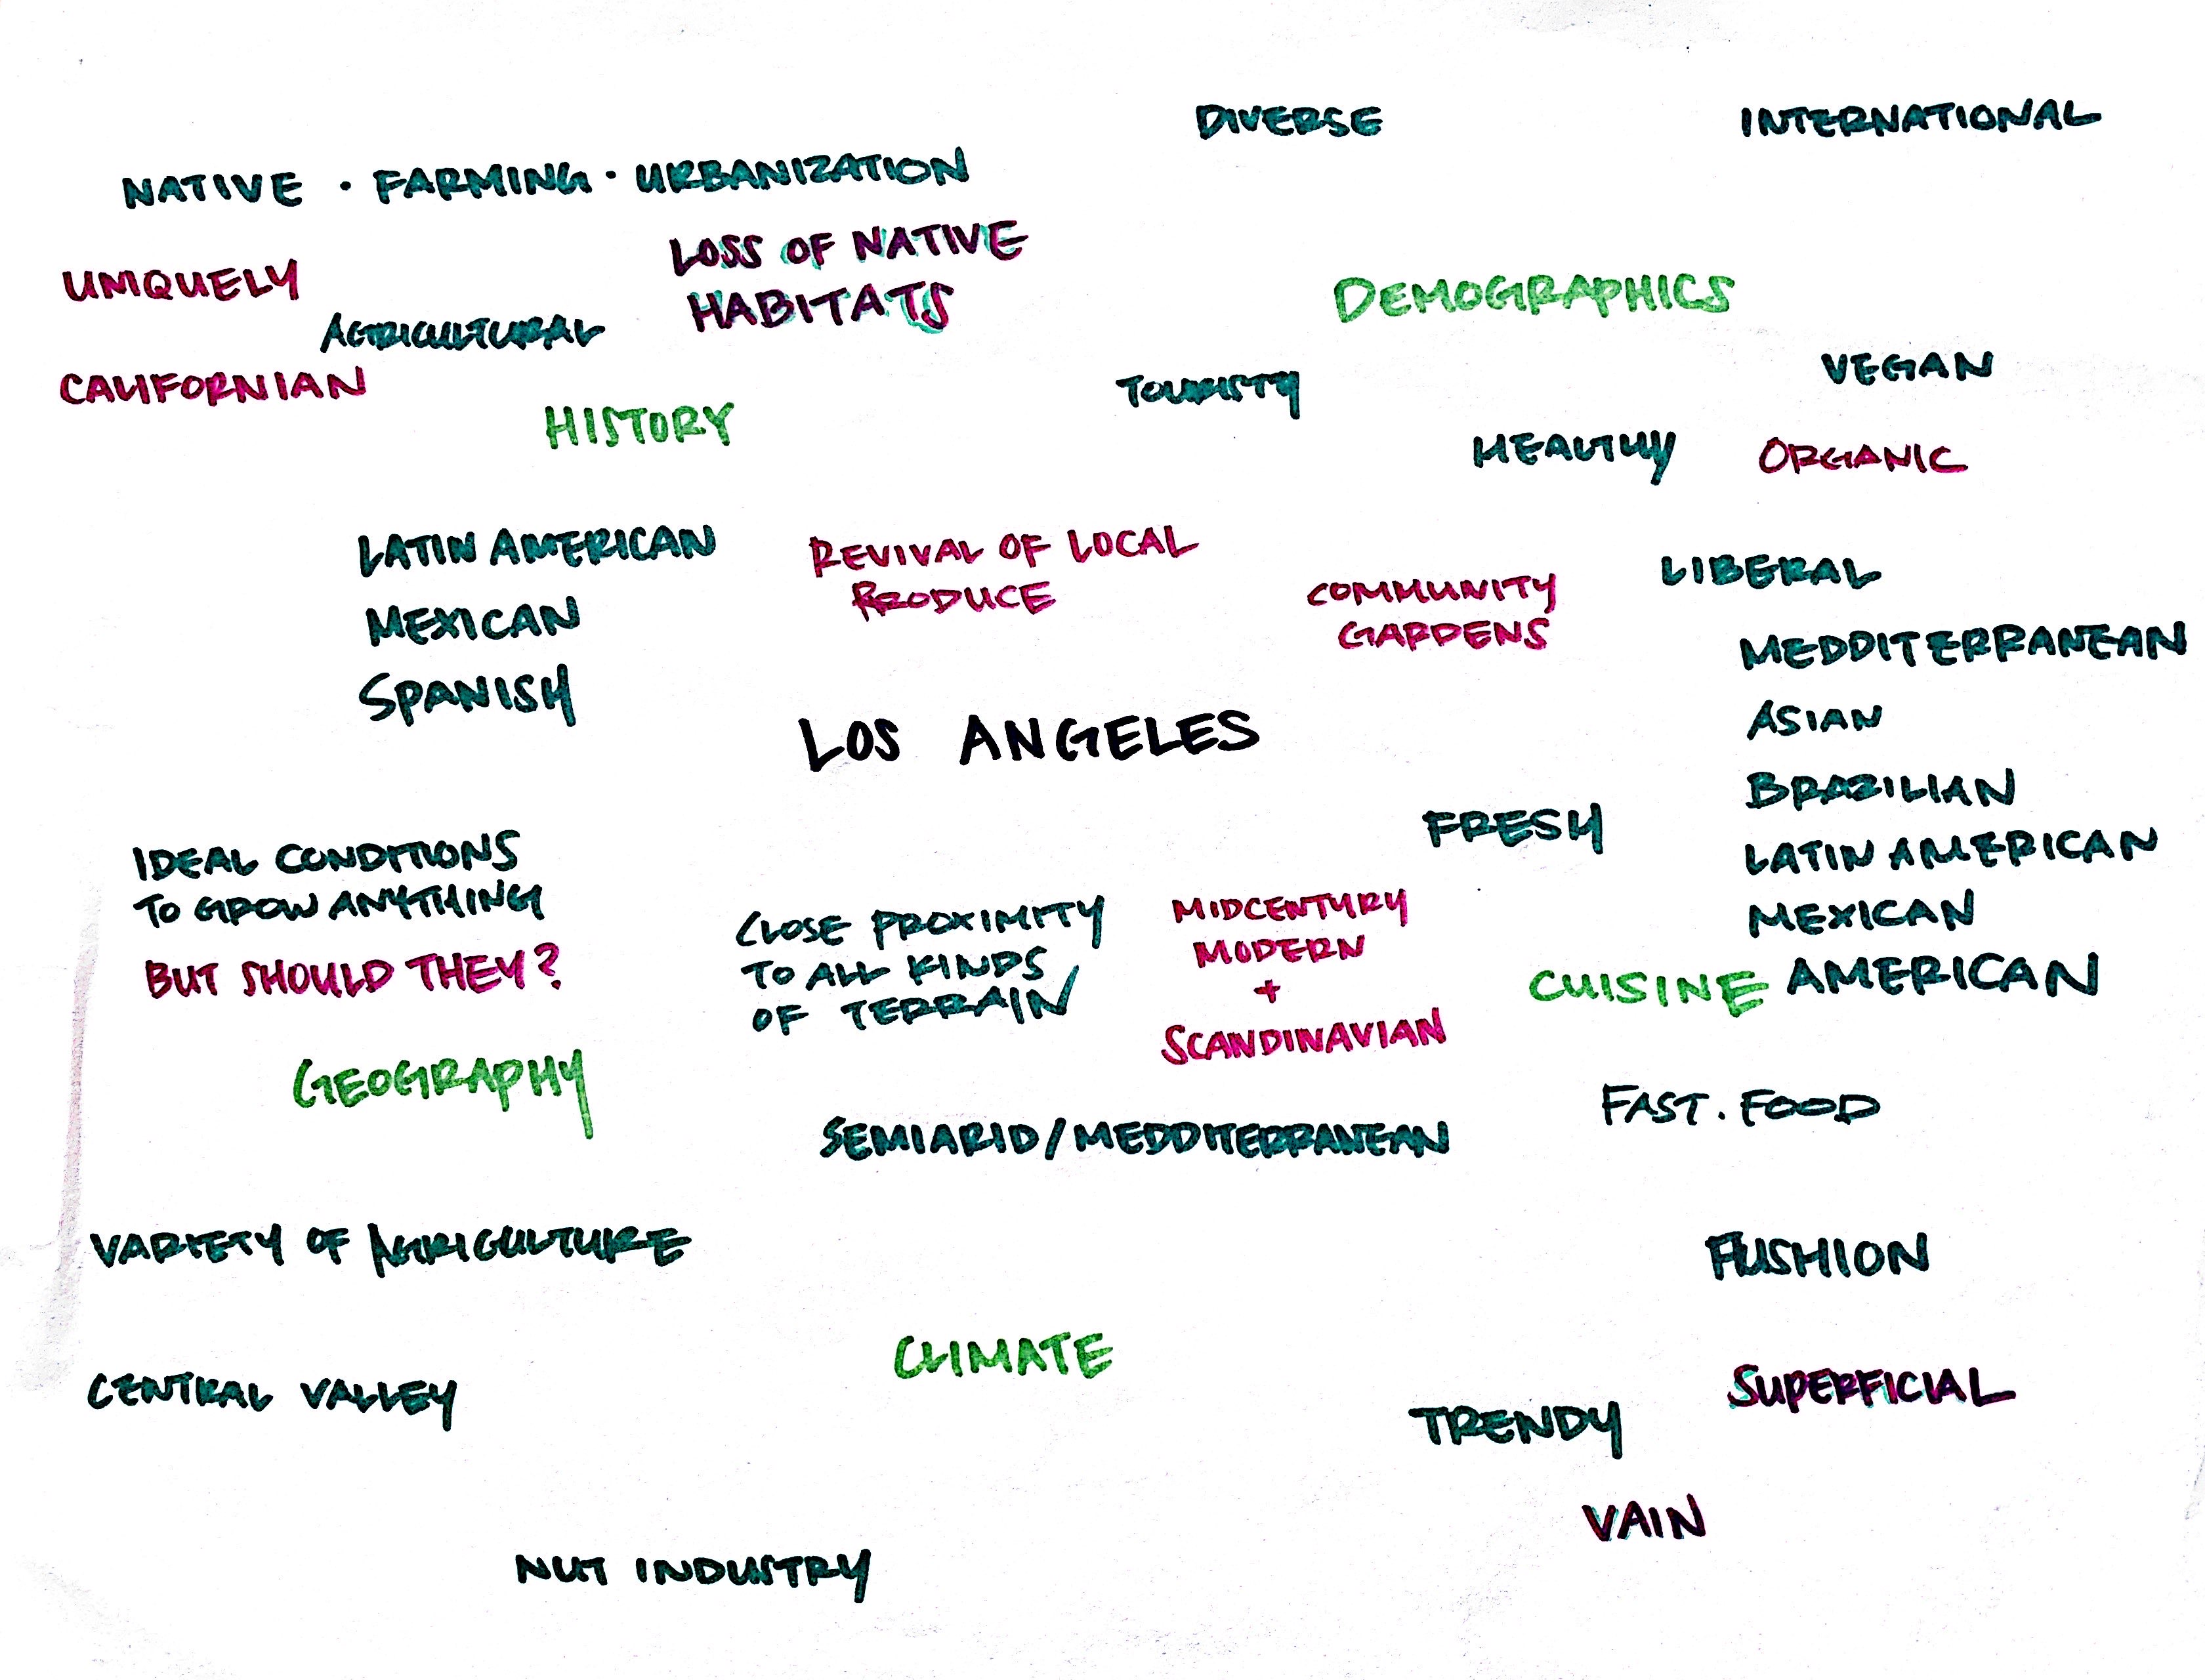 DIVERSE
INTERNATIONAL
NATIVE · FARMING · URBANIZATION
LOSS OF NATIVE
HABITATS
UNIQUELY
AGRICULTURAL
CALIFORNIAN
HISTORY
DEMOGRAPHICS
TOURISTY
VEGAN
HEALTHY
ORGANIC
LATIN AMERICAN
MEXICAN
SPANISH
REVIVAL OF LOCAL
PRODUCE
COMMUNITY
GARDENS
LIBERAL
MEDDITERRANEAN
ASIAN
BRAZILIAN
LATIN AMERICAN
MEXICAN
CUISINE AMERICAN
LOS ANGELES
FRESH
IDEAL CONDITIONS
TO GROW ANYTHING
BUT SHOULD THEY?
CLOSE PROXIMITY
TO ALL KINDS
OF TERRAIN
MIDCENTURY
MODERN
+
SCANDINAVIAN
GEOGRAPHY
FAST. FOOD
SEMIARID/MEDDITERRANEAN
VARIETY OF AGRICULTURE
FUSHION
CLIMATE
CENTRAL VALLEY
SUPERFICIAL
TRENDY
VAIN
NUT INDUSTRY